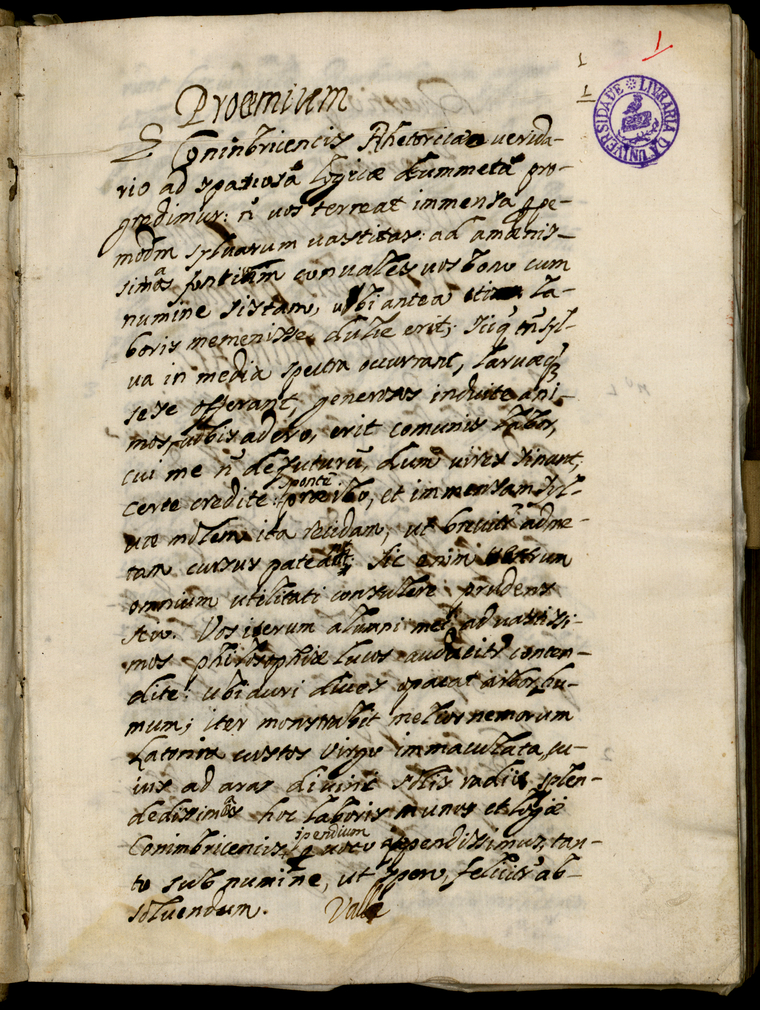 1
1
1
LIVRARIA DA UNIVERSIDADE
Proœmium
E Conimbricencis Rhetoricæ verida-
rio ad spatiosā logicæ dummetā pro-
gredimur: ñ vos terreat immensa
modm sylvarum vastitas: ad amænis-
simas fontium convalles vos bono cum
numine sistam, ubi antea la-
boris meminisse dulce erit; syl-
va in media spectra occurrant, larvæq3
sese offerant, generosos induite ani-
mos, vobis adero, erit comunis labor,
cui me ñ defuturū, dum vires sinant,
certe credite: sponte præibo, et immensam syl-
væ molem ita reddam, ut adme-
tam cursus pateat; sic enim vestrum
omnium utilitati consulere prudens
scio. Vos iterum alumni mei ad vastissi-
mos philosophiæ lucos conten-
dite: ubi auri dives opacat arbor hu-
mum; iter monstrabit melior nemorum
Latonia custos Virgo immaculata, cu-
ius ad aras divini solis radiis splen-
dedissimas hoc laboris munus et logicæ
Conimbricencis cōpendium voto appendissimus, tan-
to sub numine, ut spero, felicitr ab-
solvendum. Valle